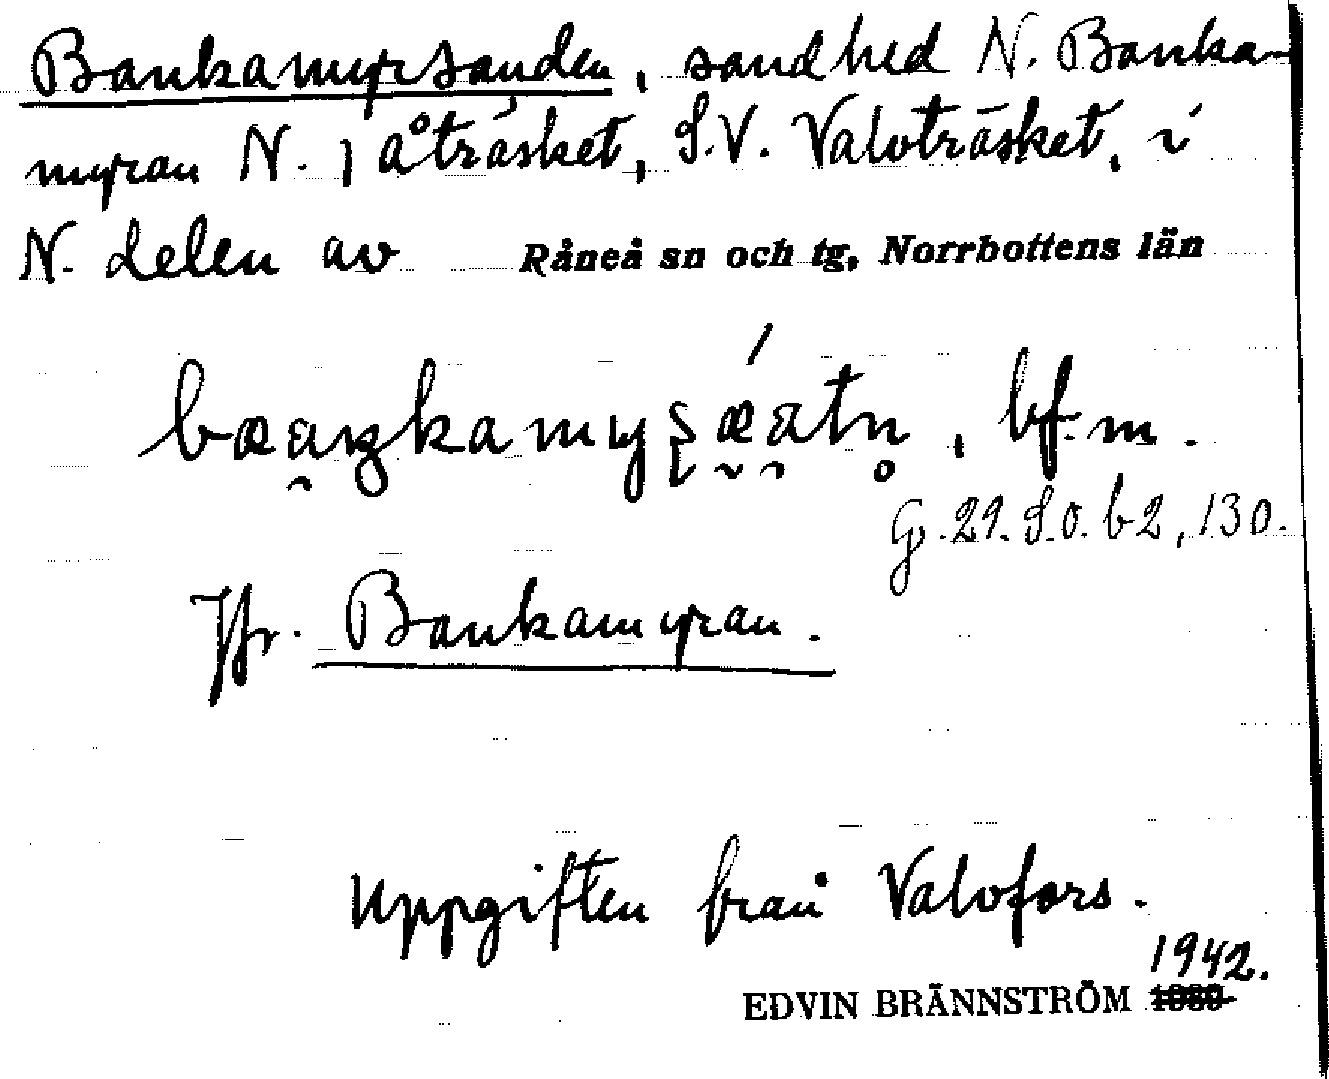 Bankamyrsanden, sandhed N. Banka-
myran N. Jåträsket, S.V. Valvträsket, i
N. delen av Råneå sn och tg, Norrbottens län
bf. m.
G. 29. S.O. b2, 130.
Jfr. Bankamyran.
Uppgiften från Valvfors.
1942.
EDVIN BRÄNNSTRÖM